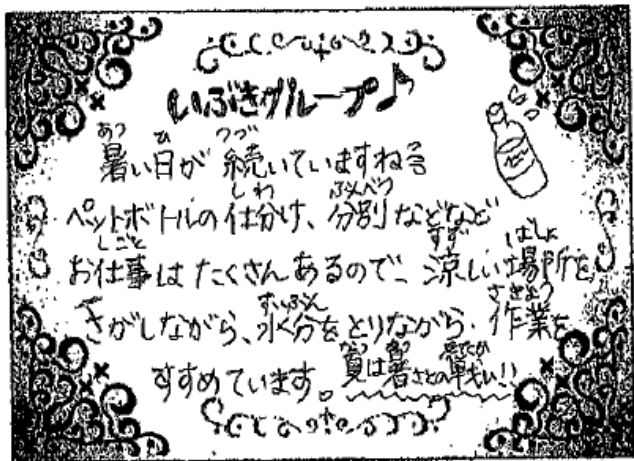 いぶきグループ♪
暑い日が続いていますね
ペットボトルの仕分け、分別などなど
お仕事はたくさんあるので、涼しい場所を
さがしながら、水分をとりながら、作業を
すすめています。夏は暑さとの戦い!!